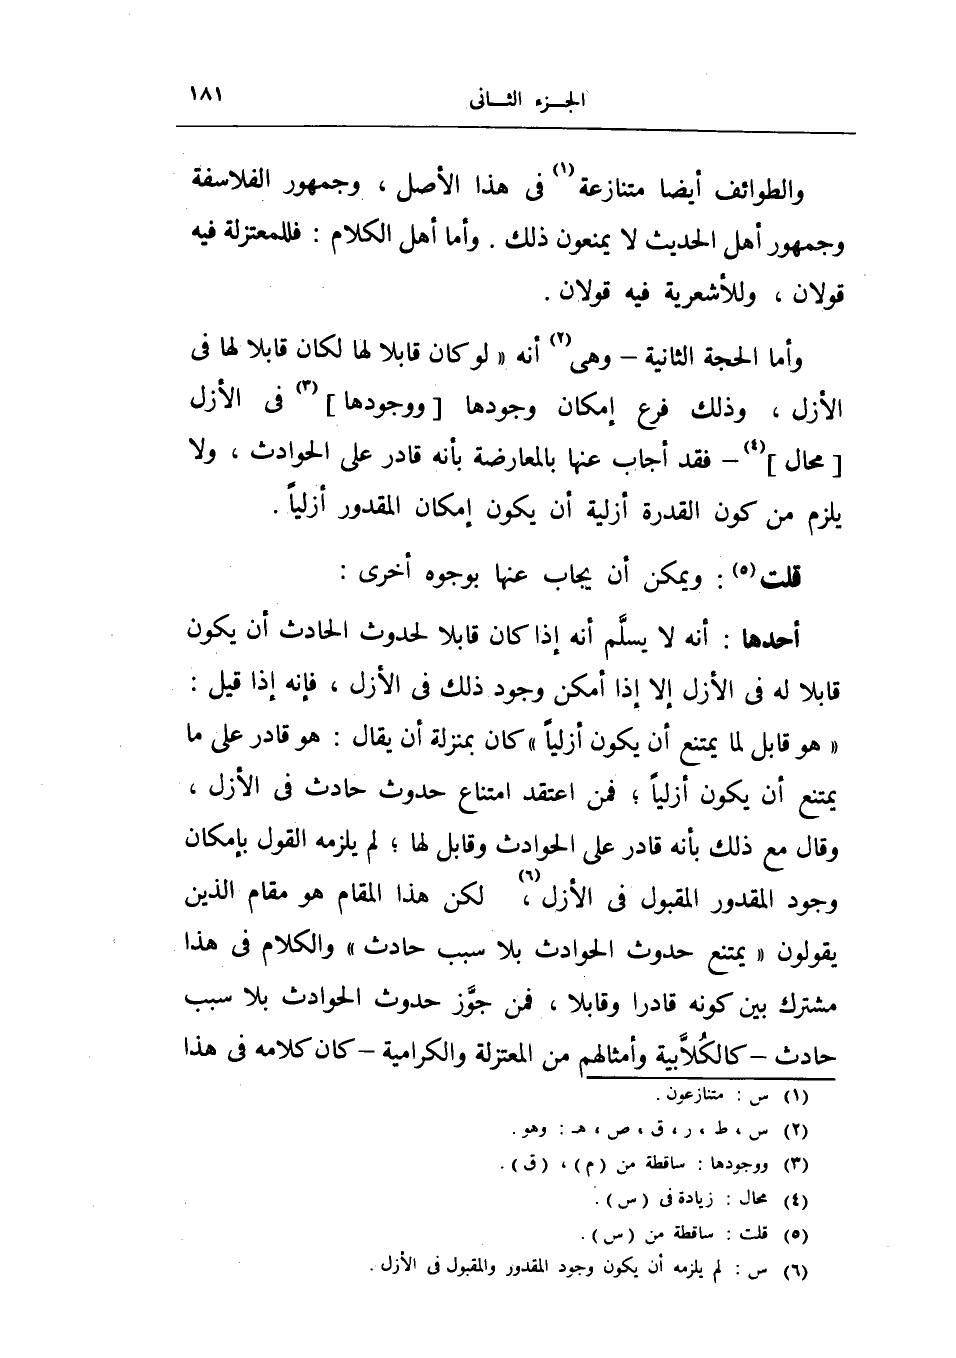 الجزء الثانى ١٨١
والطوائف أيضا متنازعة(١) فى هذا الأصل ، وجمهور الفلاسفة
وجمهور أهل الحديث لا يمنعون ذلك . وأما أهل الكلام : فللمعتزلة فيه
قولان ، وللأشعرية فيه قولان .
وأما الحجة الثانية – وهى(٢) أنه « لو كان قابلا لها لكان قابلا لها فى
الأزل ، وذلك فرع إمكان وجودها [ ووجودها ](٣) فى الأزل
[ محال ](٤) – فقد أجاب عنها بالمعارضة بأنه قادر على الحوادث ، ولا
يلزم من كون القدرة أزلية أن يكون إمكان المقدور أزلياً .
قلت(٥) : ويمكن أن يجاب عنها بوجوه أخرى :
أحدها : أنه لا يسلَّم أنه إذا كان قابلا لحدوث الحادث أن يكون
قابلا له فى الأزل إلا إذا أمكن وجود ذلك فى الأزل ، فإنه إذا قيل :
« هو قابل لما يمتنع أن يكون أزلياً » كان بمنزلة أن يقال : هو قادر على ما
يمتنع أن يكون أزلياً ؛ فمن اعتقد امتناع حدوث حادث فى الأزل ،
وقال مع ذلك بأنه قادر على الحوادث وقابل لها ؛ لم يلزمه القول بإمكان
وجود المقدور المقبول فى الأزل(٦) ، لكن هذا المقام هو مقام الذين
يقولون « يمتنع حدوث الحوادث بلا سبب حادث » والكلام فى هذا
مشترك بين كونه قادرا وقابلا ، فمن جوَّز حدوث الحوادث بلا سبب
حادث – كالكُلاَّبية وأمثالهم من المعتزلة والكرامية – كان كلامه فى هذا
(١) س : متنازعون .
(٢) س ، ط ، ر ، ق ، ص ، هـ : وهو .
(٣) ووجودها : ساقطة من ( م ) ، ( ق ) .
(٤) محال : زيادة فى ( س ) .
(٥) قلت : ساقطة من ( س ) .
(٦) س : لم يلزمه أن يكون وجود المقدور والمقبول فى الأزل .